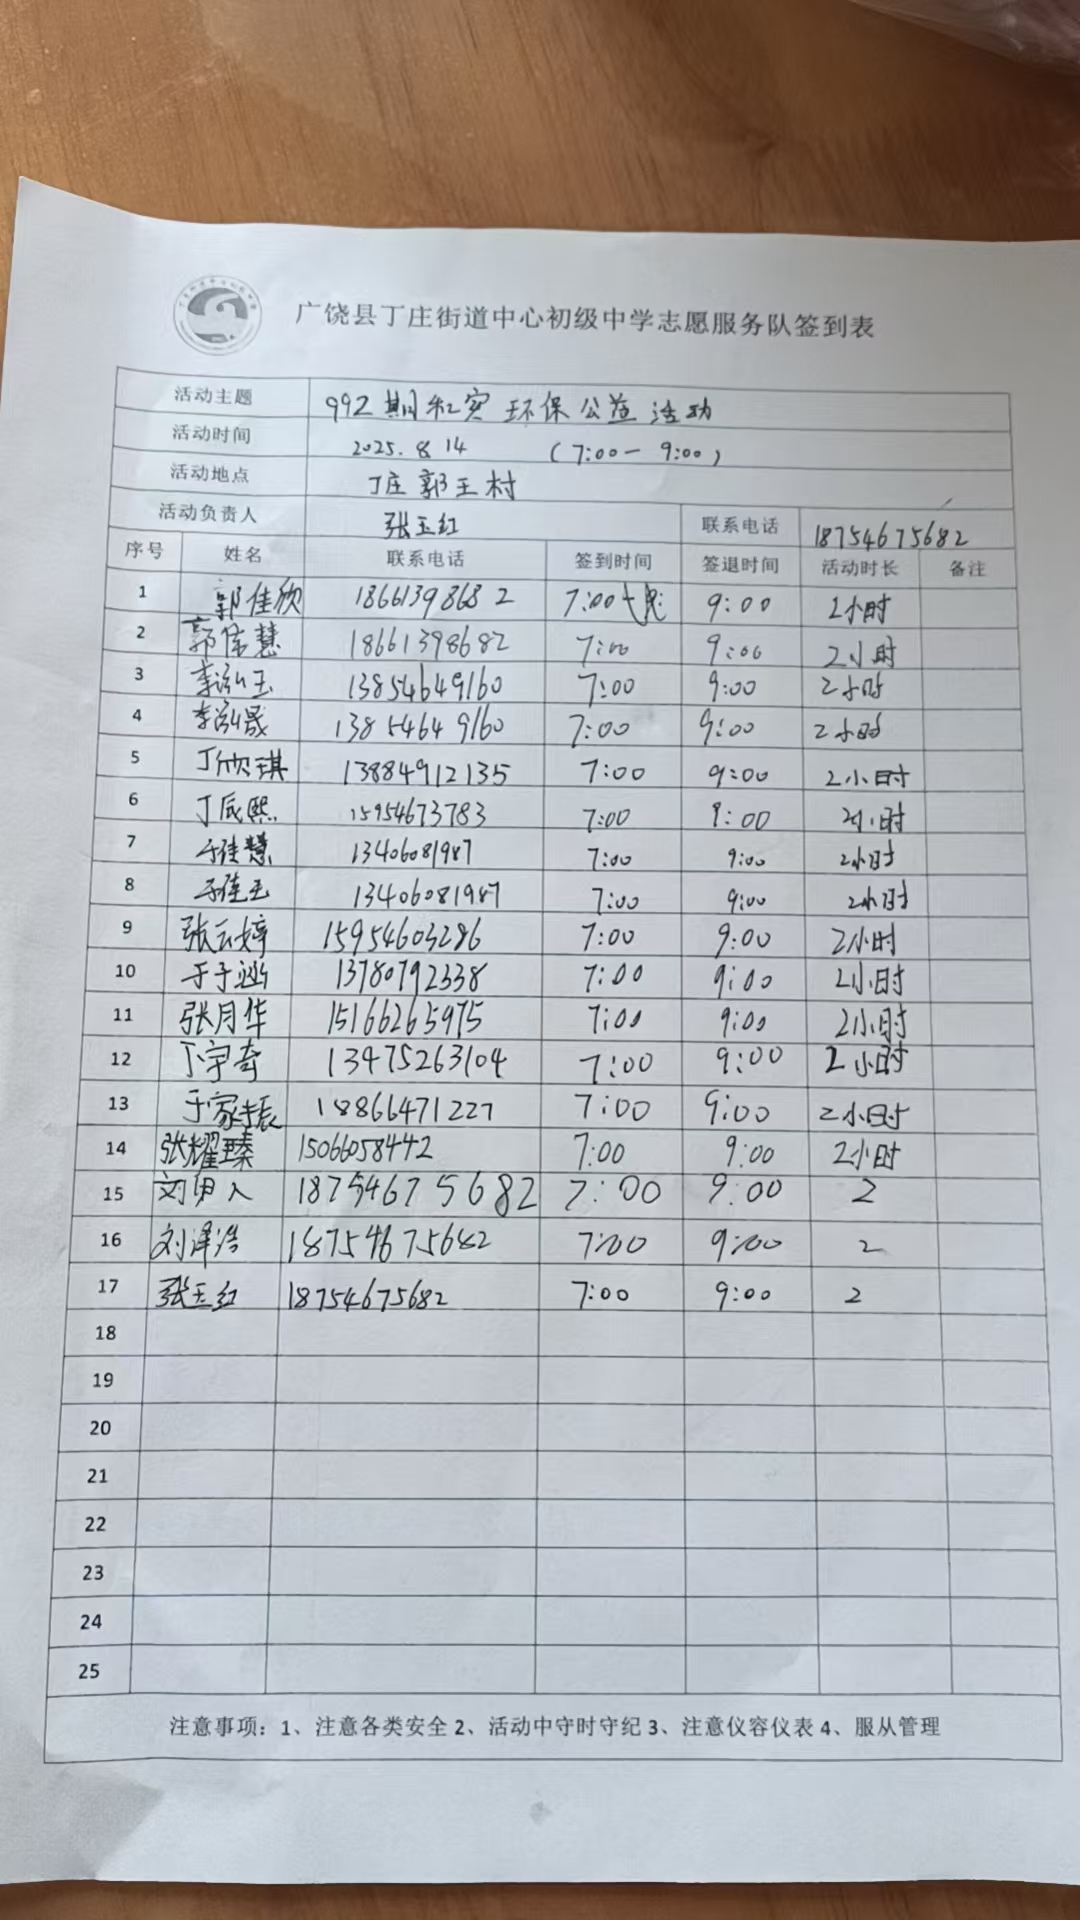 广饶县丁庄街道中心初级中学志愿服务队签到表
活动主题 992期红实环保公益活动
活动时间 2025.8.14 (7:00-9:00)
活动地点 丁庄郭王村
活动负责人 张玉红 联系电话 18754675682
序号 姓名 联系电话 签到时间 签退时间 活动时长 备注
1 郭佳欣 18661398682 7:00 9:00 2小时
2 郭佳慧 18661398682 7:00 9:00 2小时
3 李泓玉 13854649160 7:00 9:00 2小时
4 李泓晟 13854649160 7:00 9:00 2小时
5 丁欣琪 13884912135 7:00 9:00 2小时
6 丁辰熙 15954673783 7:00 9:00 2小时
7 于佳慧 13406081987 7:00 9:00 2小时
8 于佳玉 13406081987 7:00 9:00 2小时
9 张云婷 15954603286 7:00 9:00 2小时
10 于子涵 13780792338 7:00 9:00 2小时
11 张月华 15166265975 7:00 9:00 2小时
12 丁宇奇 13475263104 7:00 9:00 2小时
13 于家振 18866471227 7:00 9:00 2小时
14 张耀臻 15066058442 7:00 9:00 2小时
15 刘 18754675682 7:00 9:00 2
16 刘泽浩 18754675682 7:00 9:00 2
17 张玉红 18754675682 7:00 9:00 2
18
19
20
21
22
23
24
25
注意事项：1、注意各类安全 2、活动中守时守纪 3、注意仪容仪表 4、服从管理